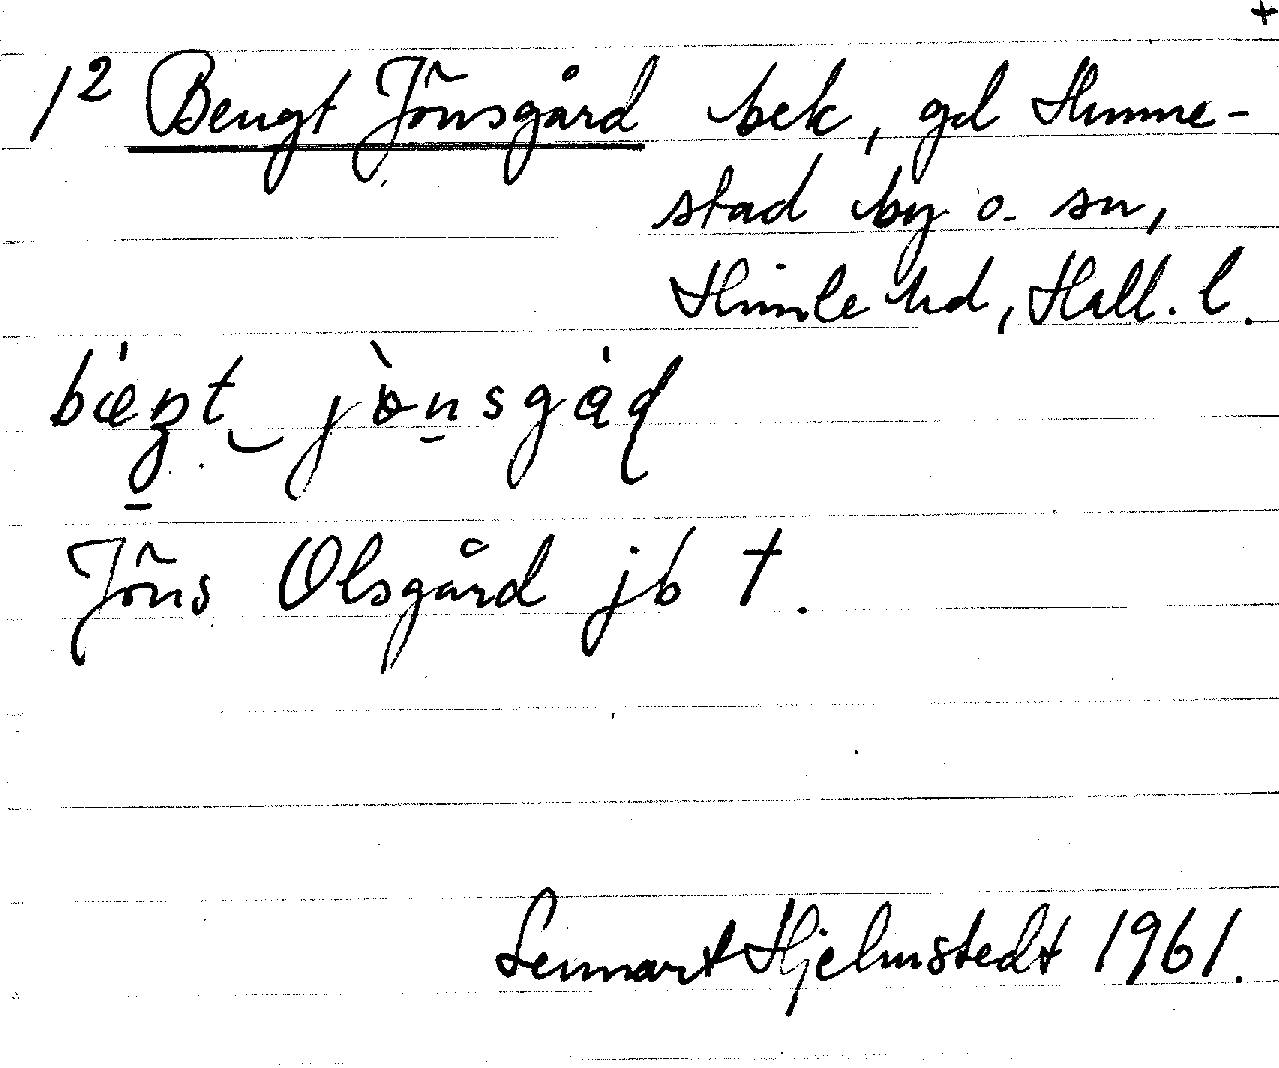 +
1² Bengt Jönsgård bek, gd Himme-
stad by o. sn,
Himle hd, Hall. l.
Jöns Olsgård jb †.
Lennart Hjelmstedt 1961.